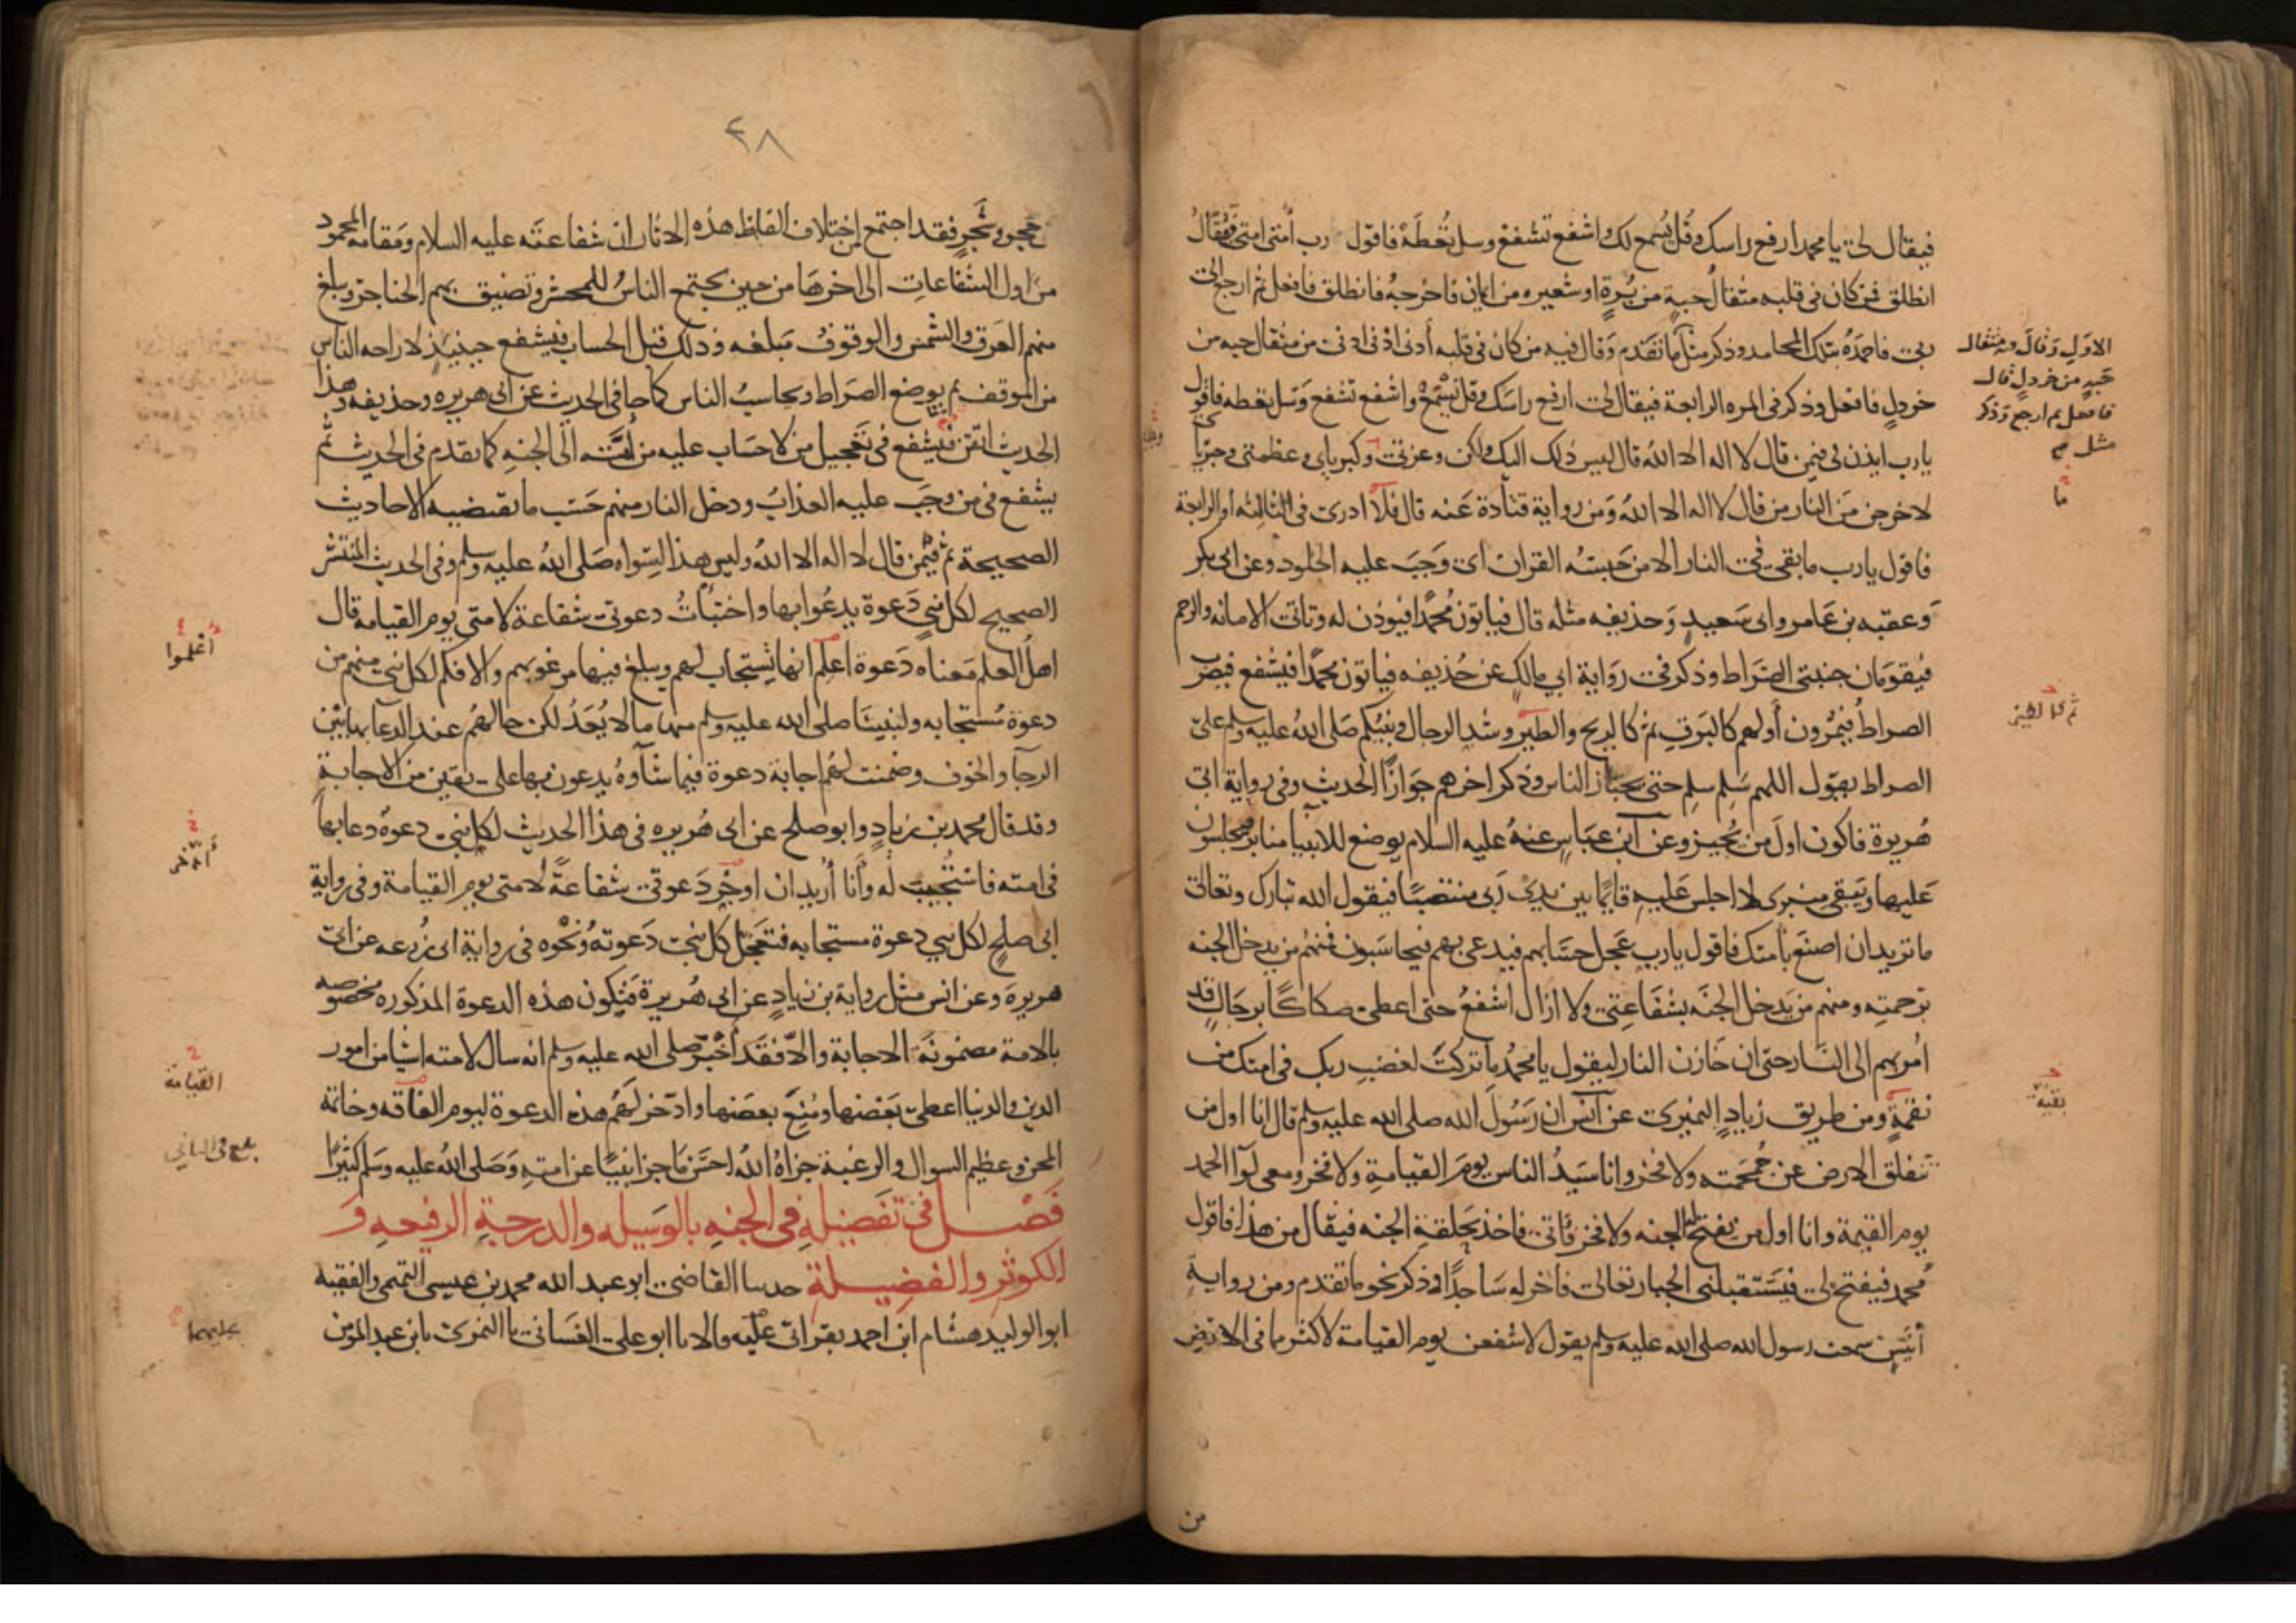 فيقال لى يا محمد ارفع راسك وقُل يُسمع لك واشفع تشفع وسل تُعطَهْ فاقول رب أُمتى امتى فيُقالُ
انطلق فمن كان فى قلبه مثقالُ حبةٍ من بُرةٍ او شعيره من ايمان فاخرجهُ فانطلق فافعل ثم ارجع الى
ربى فاحمَدُه بتلك المحامد وذكر مثل ما تقدم وقال فيه من كان فى قلبه أدنى ادنى ادنى من مثقال حبه من
خردلٍ فافعل وذكر فى المره الرابعة فيقال لى ارفع راسَك وقل يُسْمَعْ واشفع تشفع وسَل تعطه فاقول
يارب ايذن لى فيمن قال لا اله الا اللهُ قال ليس ذلك اليك ولكن وعزتى وكبرياى وعظمتى وجبرياى
لاخرجن مَن النار من قال لا اله الا اللهُ وَمن رواية قتادة عَنه قال فلا ادرى فى الثالثه أو الرابعة
فاقول يارب ما بقى فى النار الا من حَبسَهُ القران اى وَجَبَ عليه الخلود وعن ابى بكر
وَعقبه بن عَامر وابى سَعيدٍ وَحذيفه مثله قال فياتون مُحمدًا فيوذن له وتاتى الامانه والرحم
فيقومَان جنبتى الصّراط وذكر فى روَاية ابى مالكٍ عن حُذيفه فياتون محمدًا فيشفع فيضرب
الصراطُ فيمُّرون أَولهم كالبَرقِ ثمَّ كالريح والطَير وشد الرجال ونبيّكم صَلى اللهُ عليه وسلم على
الصراط يقول اللهم سَلِم سلِم حتى يجتاز الناس وذكر اخرهم جَوَازًا الحديث وفى رواية ابى
هُريرة فاكون اولَ من يُجيز وعن ابن عبَاسٍ عنهُ عليه السلام يوضع للانبيآ منابر يجلسون
عَليها ويَبقى منبرى لا اجلس عَليهِ قايمًا بين يدى رَبى منتصبًا فيقول الله تبارك وتعالى
ما تريد ان اصنعَ بأُمتك فاقول يارب عَجل حسَابهم فيدعى بهم فيحاسَبون فمنهُم من يدخل الجنه
برَحمتِه ومنهم من يَدخل الجنّه بشفَاعتِى ولا ازال اشفعُ حتى اعطى صكاكًا برجَالٍ قد
اُمر بهم الى النَّار حتى ان خَازن النار ليقول يا محمدُ ما تركتَ لغضبِ ربك فى امتك من
نقمةٍ ومن طريق زيادٍ النميرى عن أنس ان رَسُولَ الله صلى الله عليه وسلم قال انا اول من
تنفلق الارض عن جُمجمَته ولا فخر وانا سَيدُ الناس يومَ القيامةِ ولا فخر ومعى لوآ الحمد
يوم القيمة وانا اول من تفتح له الجنه ولا فخر فأتى فاخذ بحَلقةِ الجنه فيقال من هذا فاقول
مُحمد فيفتح لى فيَستقبلنى الجبار تعالى فاخر له سَاجدًا وذكر نحو ما تقدم ومن روايةِ
أُنَيس سمعت رسول الله صلى الله عليه وسلم يقول لاشفعن يوم القيامة لاكثر مما فى الارضِ
من
الاولِ وقالَ فيه مثقال
حَبهٍ من خردلٍ قال
فافعل ثم ارجع وَذكر
مثل
ما
بقية
٤٨
حجر وشَجرٍ فقد اجتمع من اختلاف الفاظ هذه الاثار ان شفاعتَه عليه السلام ومَقامه المحمود
من اول الشفاعاتِ الى اخرهَا من حين يجتمع الناسُ للمحشر وتضيق بهم الحناجر ويبلغ
منهم العَرق والشمس والوقوفُ مَبلغه وذلك قبل الحساب فيشفع حينيذٍ لاراحه الناس
من الموقف ثم يوضع الصرَاط ويحاسبُ الناس كما جا فى الحديث عن ابى هريره وحذيفه وهذا
الحديث اتقن فيشفع فى تَعجيل من لا حسَاب عليه من اُمته الى الجنهِ كما تقدم فى الحديث ثُم
يشفع فى من وجَب عليه العذابُ ودخل النار منهم حَسَب ما تقتضيه الاحاديث
الصحيحة ثم فيمن قال لا اله الا اللهُ وليس هذا لسِواه صَلى اللهُ عليه وسلم وفى الحديث المنتشر
الصحيح لكل نبىٍ دَعوة يدعُوا بها واختبأتُ دعوتى شفاعة لامتى يوم القيامه قال
اهلُ العلم مَعناه دَعوة اعلم انها تُستجاب لهم ويبلغ فيها مرغوبهم والا فكم لكل نبى منهم من
دعوة مُستجابه ولنبينَا صلى الله عليه وسلم منها ما لا يُعَدُ لكن حالهُم عند الدعَا بها بَيْن
الرجآ والخوف وضمنت لهُم اجابة دعوة فيما شآوهُ يدعون بها على يقين من الاجابةِ
وقد قال محمد بن زيادٍ وابو صلح عن ابى هُريره فى هذا الحديث لكل نبى دعوةٌ دعا بها
فى امته فاستُجيب له وأنا أُريد ان اوخر دَعوتى شفاعةً لامتى يوم القيامة وفى رواية
ابى صلحٍ لكل نبي دعوة مستجابه فتعَجلَ كل نبى دَعوتهُ ونَحْوه فى رواية ابى زُرعه عن ابى
هريرة وعن انس مثل رواية بن زيادٍ عن ابى هُريرة فتكون هذه الدعوة المذكوره مخصوصه
بالامة مضمونةَ الاجابة والّا فقَد أخبَر صلى الله عليه وسلم انه سال لامته اشيا من امور
الدين والدنيا اعطى بَعضها ومُنِعَ بعضَها وادّخر لهُم هذه الدعوة ليوم الفاقه وخاتمة
المحن وعظيم السوال والرغبة جزاهُ اللهُ احسَن ما جزا نبيًا عن امتهِ وَصَلى اللهُ عليه وسَلم كثيرًا
فَصْل فى تفَضيلهِ فى الجنهِ بالوَسيله والدرجةِ الرفيعهِ وَ
الكوثرِ والفضيلةِ حدثنا القاضى ابو عبد الله محمد بن عيسى التميمى والفقيه
ابو الوليد هشام ابن احمد بقراتى عليه والا نا ابو على الغسانى نا النمرى نا ابن عبد المؤمن
أُعْلموا
أدّخر
القيامة
بلغ فى الثاني
عليهما